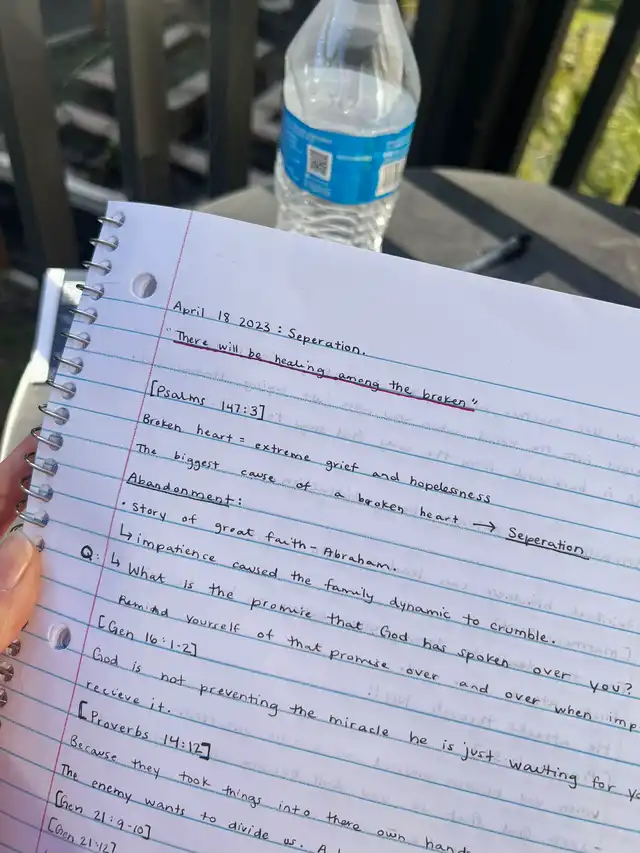 April 18 2023 : Seperation.
"There will be healing among the broken"
[Psalms 147:3]
Broken heart = extreme grief and hopelessness
The biggest cause of a broken heart → Seperation
Abandonment:
• Story of great faith - Abraham.
↳ impatience caused the family dynamic to crumble.
Q: ↳ What is the promise that God has spoken over you?
Remind yourself of that promise over and over when imp
[Gen 16:1-2]
God is not preventing the miracle he is just waiting for yo
recieve it.
[Proverbs 14:12]
Because they took things into there own hand
The enemy wants to divide us.
[Gen 21:9-10]
[Gen 21:12]